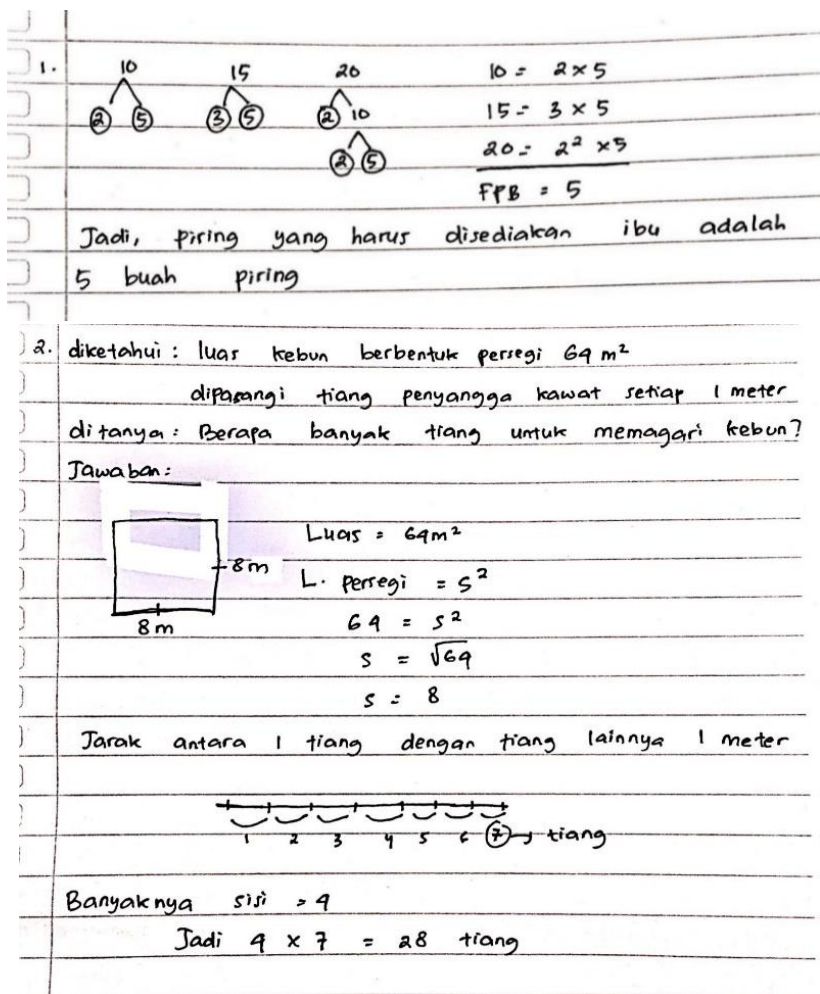 1. 10 15 20 10 = 2 × 5
2 5 3 5 2 10 15 = 3 × 5
2 5 20 = 2² × 5
FPB = 5
Jadi, piring yang harus disediakan ibu adalah
5 buah piring
2. diketahui : luas kebun berbentuk persegi 64 m²
dipasangi tiang penyangga kawat setiap 1 meter
ditanya : Berapa banyak tiang untuk memagari kebun?
Jawaban :
Luas = 64 m²
8 m L. persegi = s²
8 m 64 = s²
s = √64
s = 8
Jarak antara 1 tiang dengan tiang lainnya 1 meter
1 2 3 4 5 6 7 → tiang
Banyaknya sisi = 4
Jadi 4 × 7 = 28 tiang